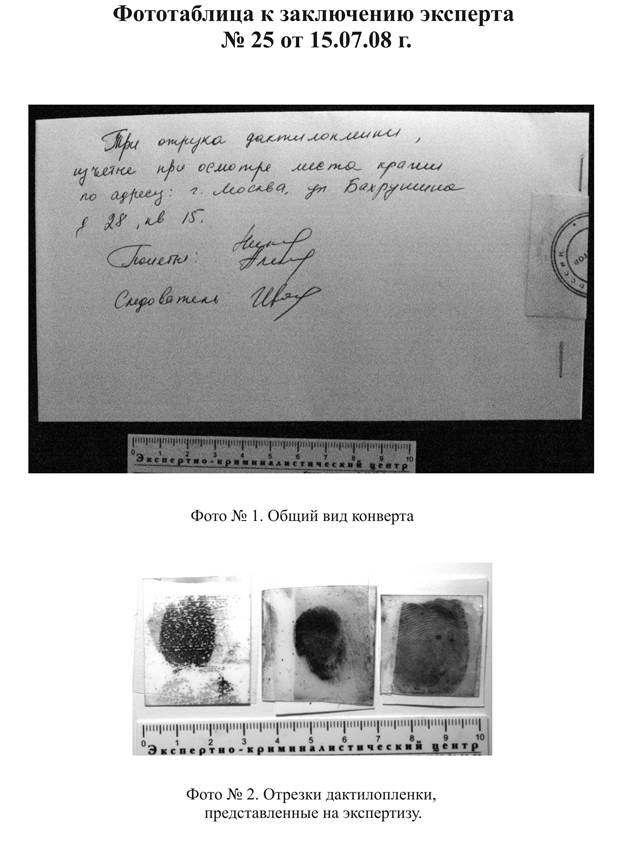 Фототаблица к заключению эксперта
№ 25 от 15.07.08 г.
Три отрезка дактилопленки,
изъятые при осмотре места кражи
по адресу: г. Москва, ул Бахрушина
д 28, кв 15.
Понятые:
Следователь
0 1 2 3 4 5 6 7 8 9 10
Экспертно-криминалистический центр
Фото № 1. Общий вид конверта
0 1 2 3 4 5 6 7 8 9 10
Экспертно-криминалистический центр
Фото № 2. Отрезки дактилопленки,
представленные на экспертизу.